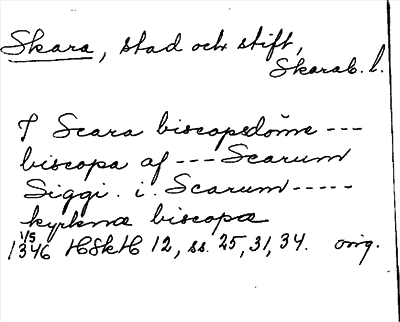 Skara, stad och stift,
Skarab. l.
J Scara biscopsdöme ---
biscopa af --- Scarum
Siggi. i. Scarum -----
kyrkna biscopa
1/5
1346 HSkH 12, ss. 25, 31, 34. orig.